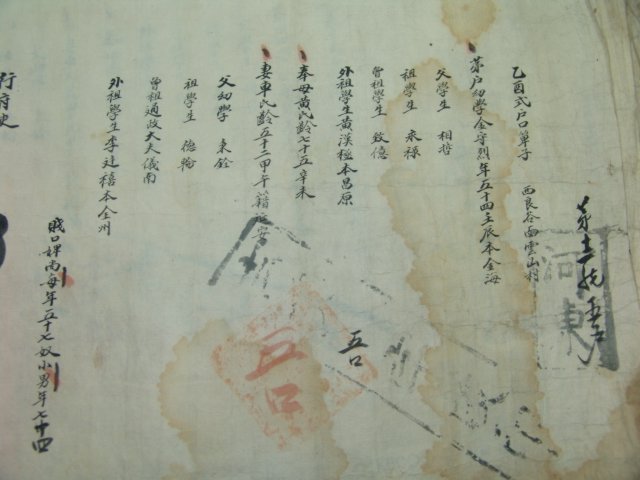 乙酉式戶口單子 西良谷面雲山村
第十一統五戶
河東
第戶幼學金守烈年五十四壬辰本金海
父學生 相哲
祖學生 泰祿
曾祖學生 致億
外祖學生黃漢極本昌原
奉母黃氏齡七十五辛未
妻車氏齡五十二甲午籍延安
父幼學 東銓
祖學生 德翰
曾祖通政大夫儀南
外祖學生李建禧本全州
賤口婢尚每年五十七奴小男年七十四
五口
五口
行府使